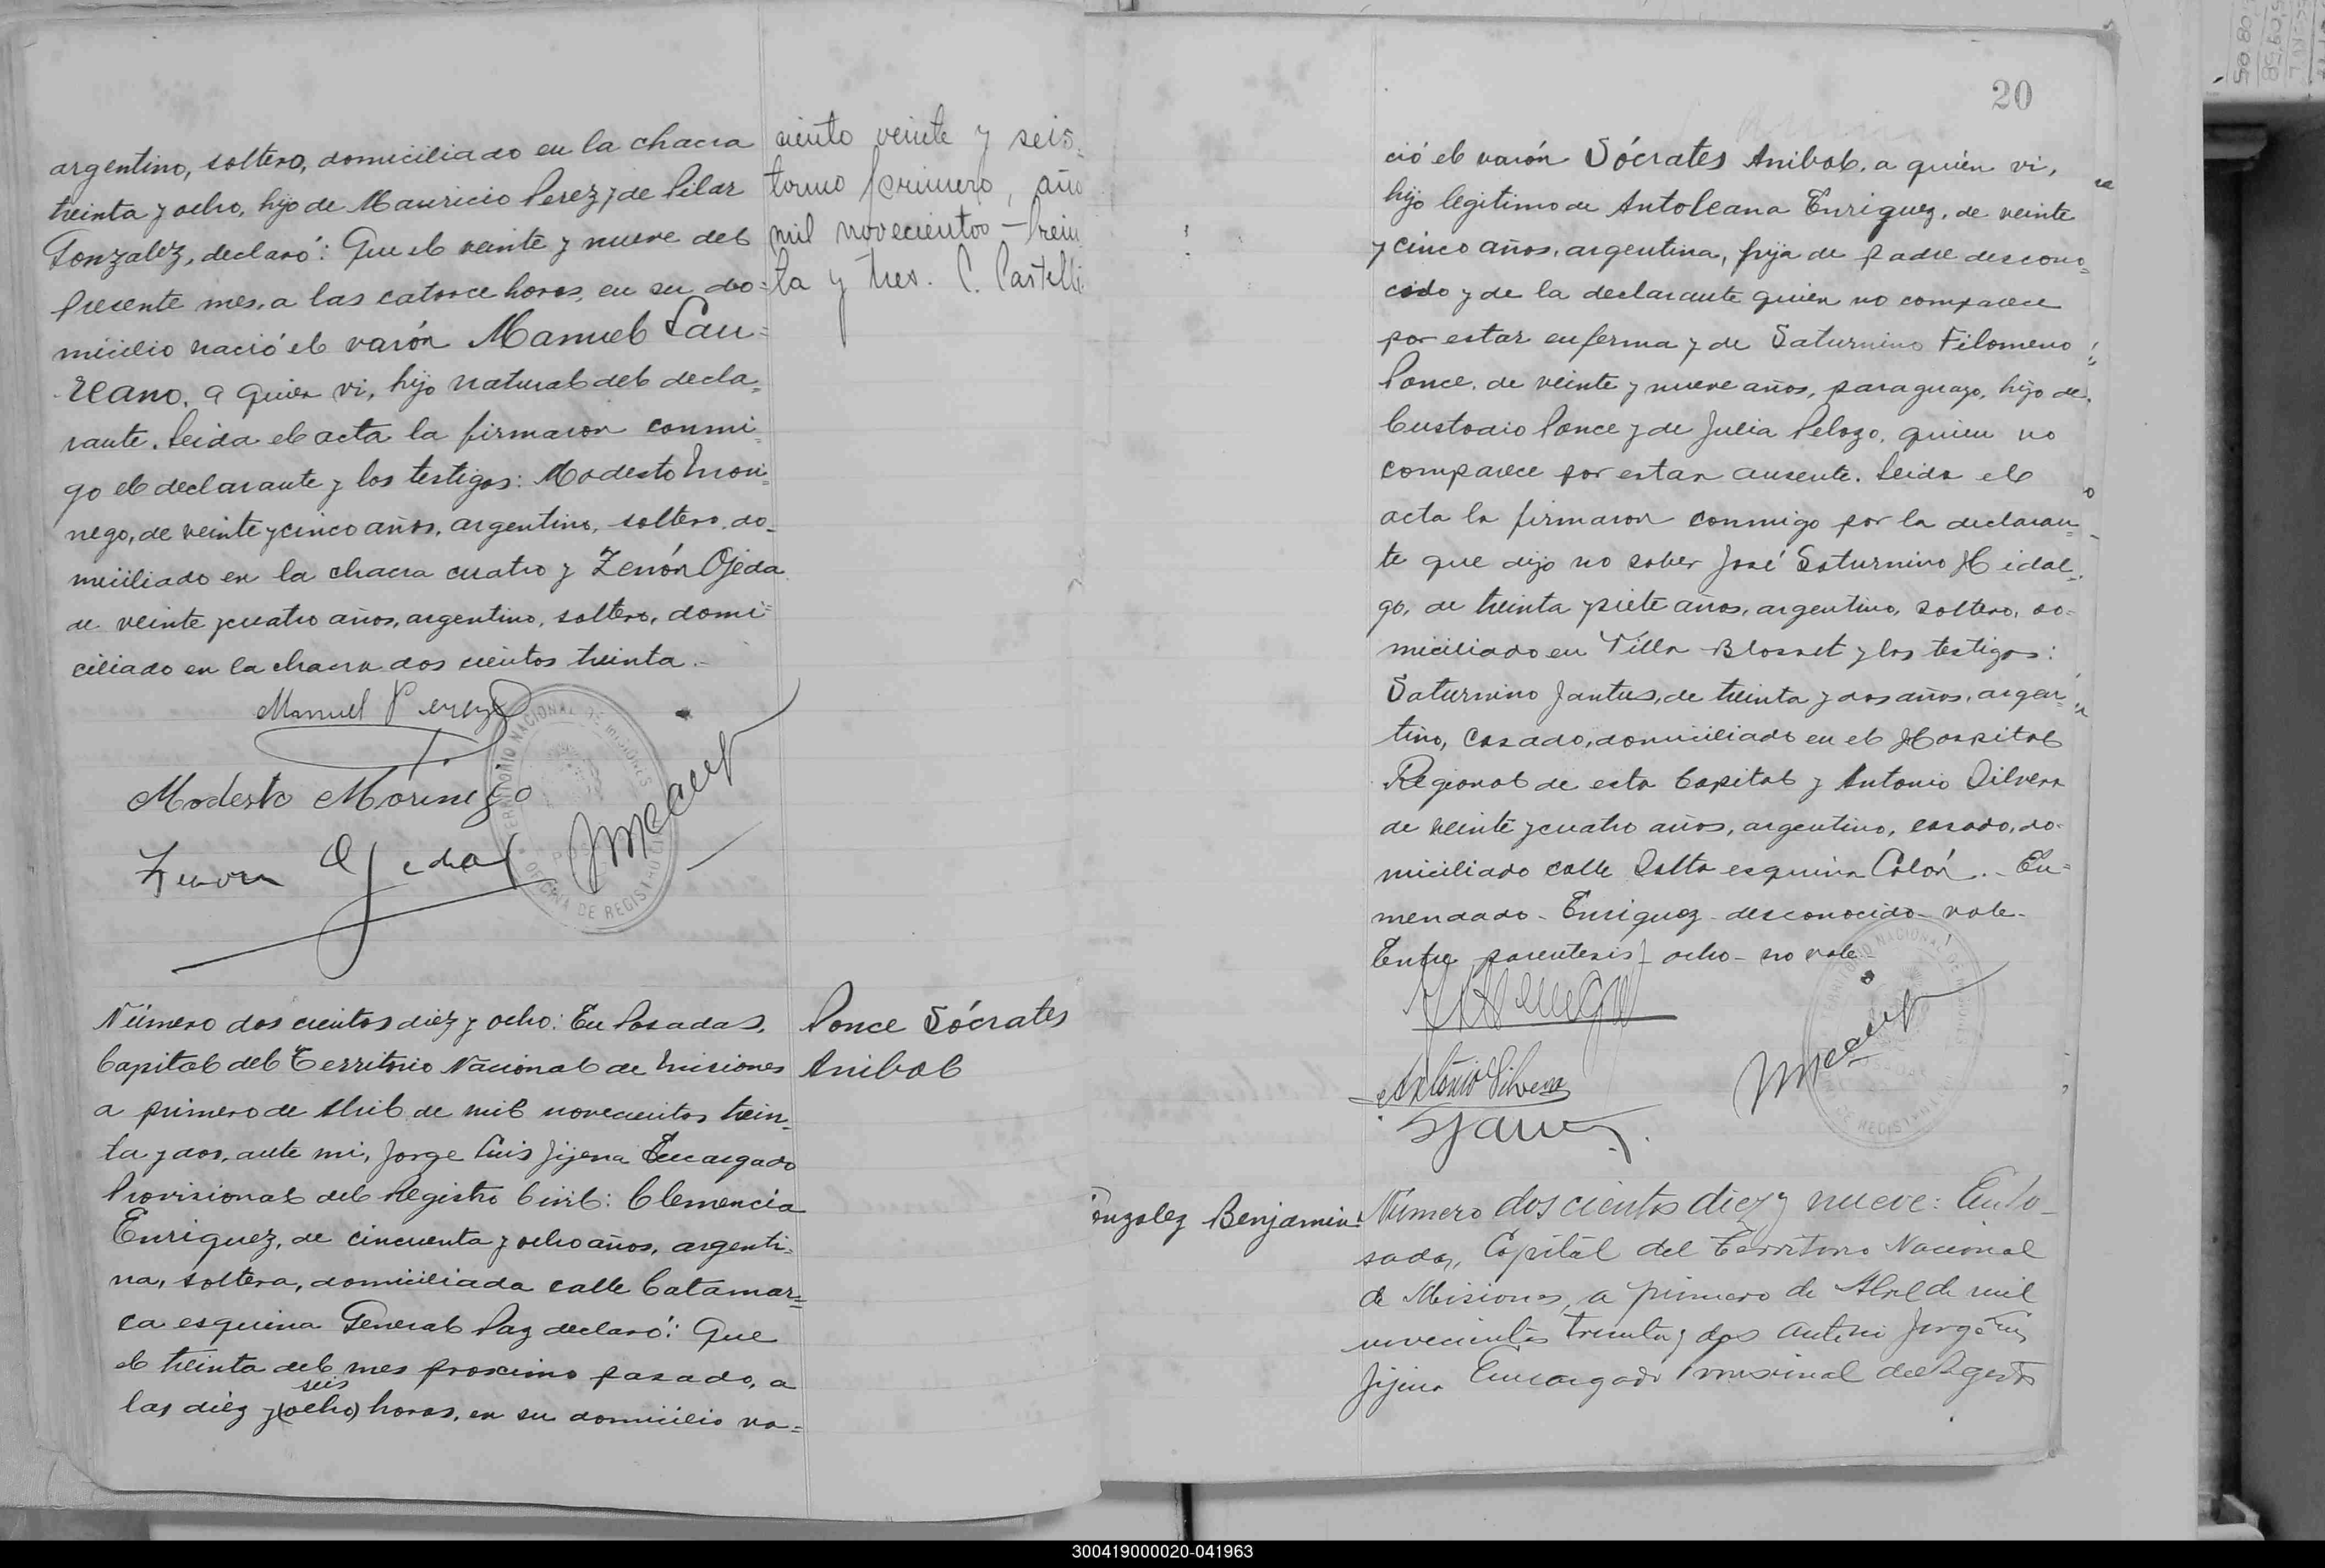 argentino, soltero, domiciliado en la chacra
treinta y ocho, hijo de Mauricio Perez y de Pilar
Gonzalez, declaró: Que el veinte y nueve del
presente mes, a las catorce horas, en su do=
micilio nació el varón Manuel Lau=
reano, a quien vi, hijo natural del decla=
rante. Leida el acta la firmaron conmi=
go el declarante y los testigos: Modesto Mori=
nego, de veinte y cinco años, argentino, soltero, do=
miciliado en la chacra cuatro y Zenón Ojeda
de veinte y cuatro años, argentino, soltero, domi=
ciliado en la chacra dos cientos treinta.-
Manuel Perez
Modesto Morinego
Zenon Ojeda
TERRITORIO NACIONAL DE MISIONES
OFICINA DE REGISTRO CIVIL
ciento veinte y seis,
tomo primero, año
mil novecientos trein
ta y tres. C. Castelli
Número dos cientos diez y ocho: En Posadas,
Capital del Territorio Nacional de Misiones
a primero de Abril de mil novecientos trein=
ta y dos, ante mi, Jorge Luis Jijena Encargado
Provisional del Registro Civil: Clemencia
Enriquez, de cincuenta y ocho años, argenti=
na, soltera, domiciliada calle Catamar=
ca esquina General Paz declaró: Que
el treinta del mes proscimo pasado, a
seis
las diez y (ocho) horas, en su domicilio na=
Ponce Sócrates
Anibal
20
ció el varón Sócrates Anibal, a quién vi,
hijo legitimo de Antoleana Enriquez, de veinte
y cinco años, argentina, hija de padre descono=
cido y de la declarante quien no comparece
por estar enferma y de Saturnino Filomeno
Ponce, de veinte y nueve años, paraguayo, hijo de
Custodio Ponce y de Julia Pelozo, quien no
comparece por estar ausente. Leida el
acta la firmaron conmigo por la declaran=
te que dijo no saber José Saturnino Hidal=
go, de treinta y siete años, argentino, soltero, do=
miciliado en Villa Blosset y los testigos:
Saturnino Jantus, de treinta y dos años, argen=
tino, casado, domiciliado en el Hospital
Regional de esta Capital y Antonio Silvera
de veinte y cuatro años, argentino, casado, do=
miciliado calle Salta esquina Colón.- En=
mendado- Enriquez- desconocido- vale-
Entre parentesis- ocho- no vale-
Antonio Silvera
Gonzalez Benjamin
Número dos cientos diez y nueve: En Po-
sadas, Capital del Territorio Nacional
de Misiones, a primero de Abril de mil
novecientos treinta y dos ante mi Jorge Luis
Jijena Encargado Provisional del Registro
300419000020-041963